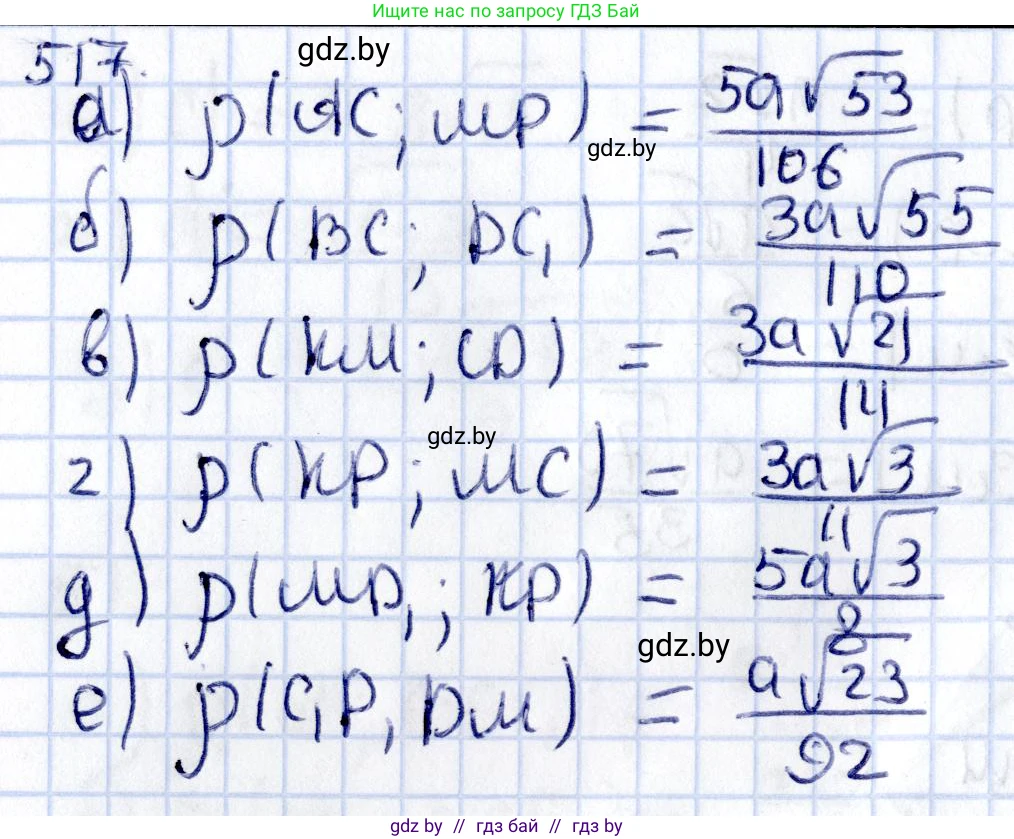 Ищите нас по запросу ГДЗ Бай
517.
gdz.by
а) ρ(AC; MP) = 5a√53 / 106
gdz.by
б) ρ(BC; DC₁) = 3a√55 / 110
в) ρ(KM; CD) = 3a√21 / 14
gdz.by
г) ρ(KP; MC) = 3a√3 / 11
д) ρ(MD₁; KP) = 5a√3 / 8
gdz.by
е) ρ(C₁P, DM) = a√23 / 92
gdz.by // гдз бай // gdz.by